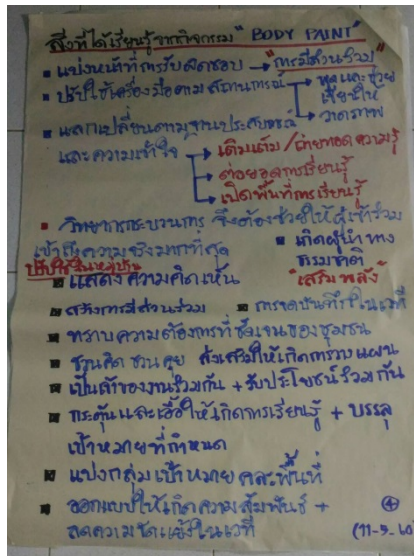 สิ่งที่ได้เรียนรู้จากกิจกรรม "BODY PAINT"
▪ แบ่งหน้าที่การรับผิดชอบ → "การมีส่วนร่วม"
▪ ปรับใช้เครื่องมือตามสถานการณ์ → พูดและช่วย
เขียนให้
→ วาดภาพ
▪ แลกเปลี่ยนตามฐานประสบการณ์
และความเข้าใจ → เติมเต็ม / ถ่ายทอดความรู้
→ ต่อยอดการเรียนรู้
→ เปิดพื้นที่การเรียนรู้
▪ วิทยากรกระบวนการ จึงต้องช่วยให้ผู้เข้าร่วม
เข้าถึงความจริงมากที่สุด
▪ เกิดผู้นำทาง
ธรรมชาติ
ปรับใช้ในหมู่บ้าน
"เสริมพลัง"
▪ แสดงความคิดเห็น
▪ สร้างการมีส่วนร่วม ▪ การจดบันทึกในเวที
▪ ทราบความต้องการที่ชัดเจนของชุมชน
▪ ชวนคิด ชวนคุย ส่งเสริมให้เกิดการวางแผน
▪ เป็นเจ้าของงานร่วมกัน + รับประโยชน์ร่วมกัน
▪ กระตุ้นและเอื้อให้เกิดการเรียนรู้ + บรรลุ
เป้าหมายที่กำหนด
▪ แบ่งกลุ่มเป้าหมายคละพื้นที่
▪ ออกแบบให้เกิดความสัมพันธ์ +
ลดความขัดแย้งในเวที
④
(11-5-60)